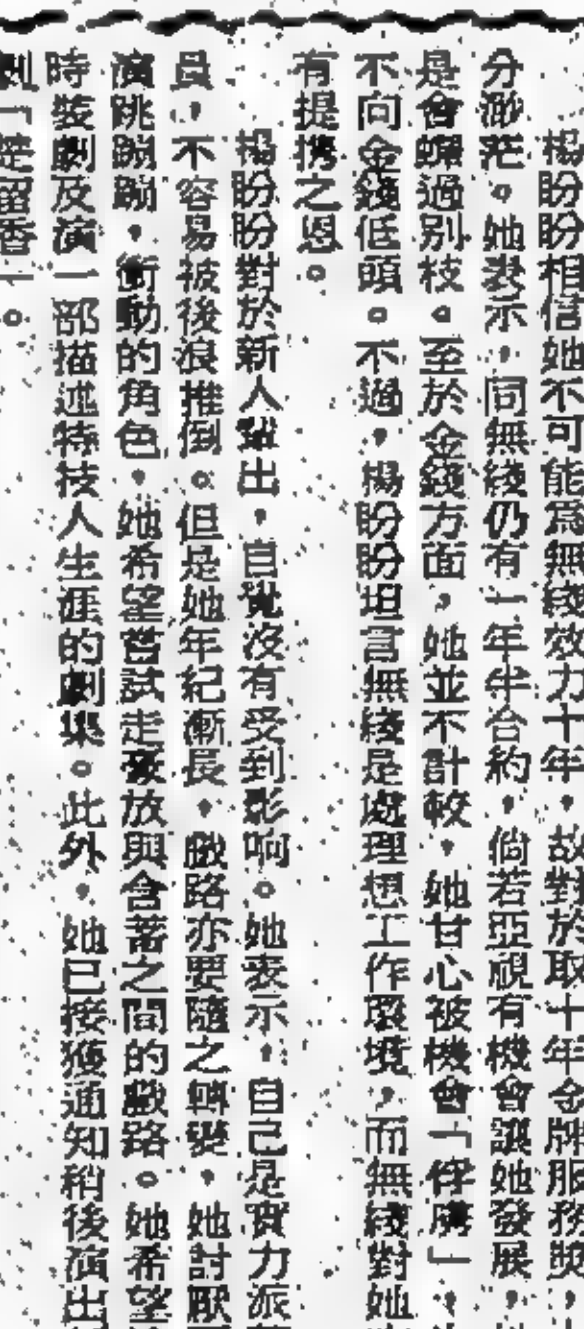 楊盼盼相信她不可能爲無綫效力十年，故對於取十年金牌服務奬，十
分渺茫。她表示，同無綫仍有一年半合約，倘若亞視有機會讓她發展，
是會蟬過別枝。至於金錢方面，她並不計較，她甘心被機會「俘虜」，
不向金錢低頭。不過，楊盼盼坦言無綫是處理想工作環境，而無綫對她
有提携之恩。
楊盼盼對於新人輩出，自覺沒有受到影响。她表示，自己是實力派
員，不容易被後浪推倒。但是她年紀漸長，戲路亦要隨之轉變，她討厭
演跳蹦蹦，衝動的角色，她希望嘗試走豪放與含蓄之間的戲路。她希望
時裝劇及演一部描述特技人生涯的劇集。此外，她已接獲通知稍後演出
劇「楚留香」。